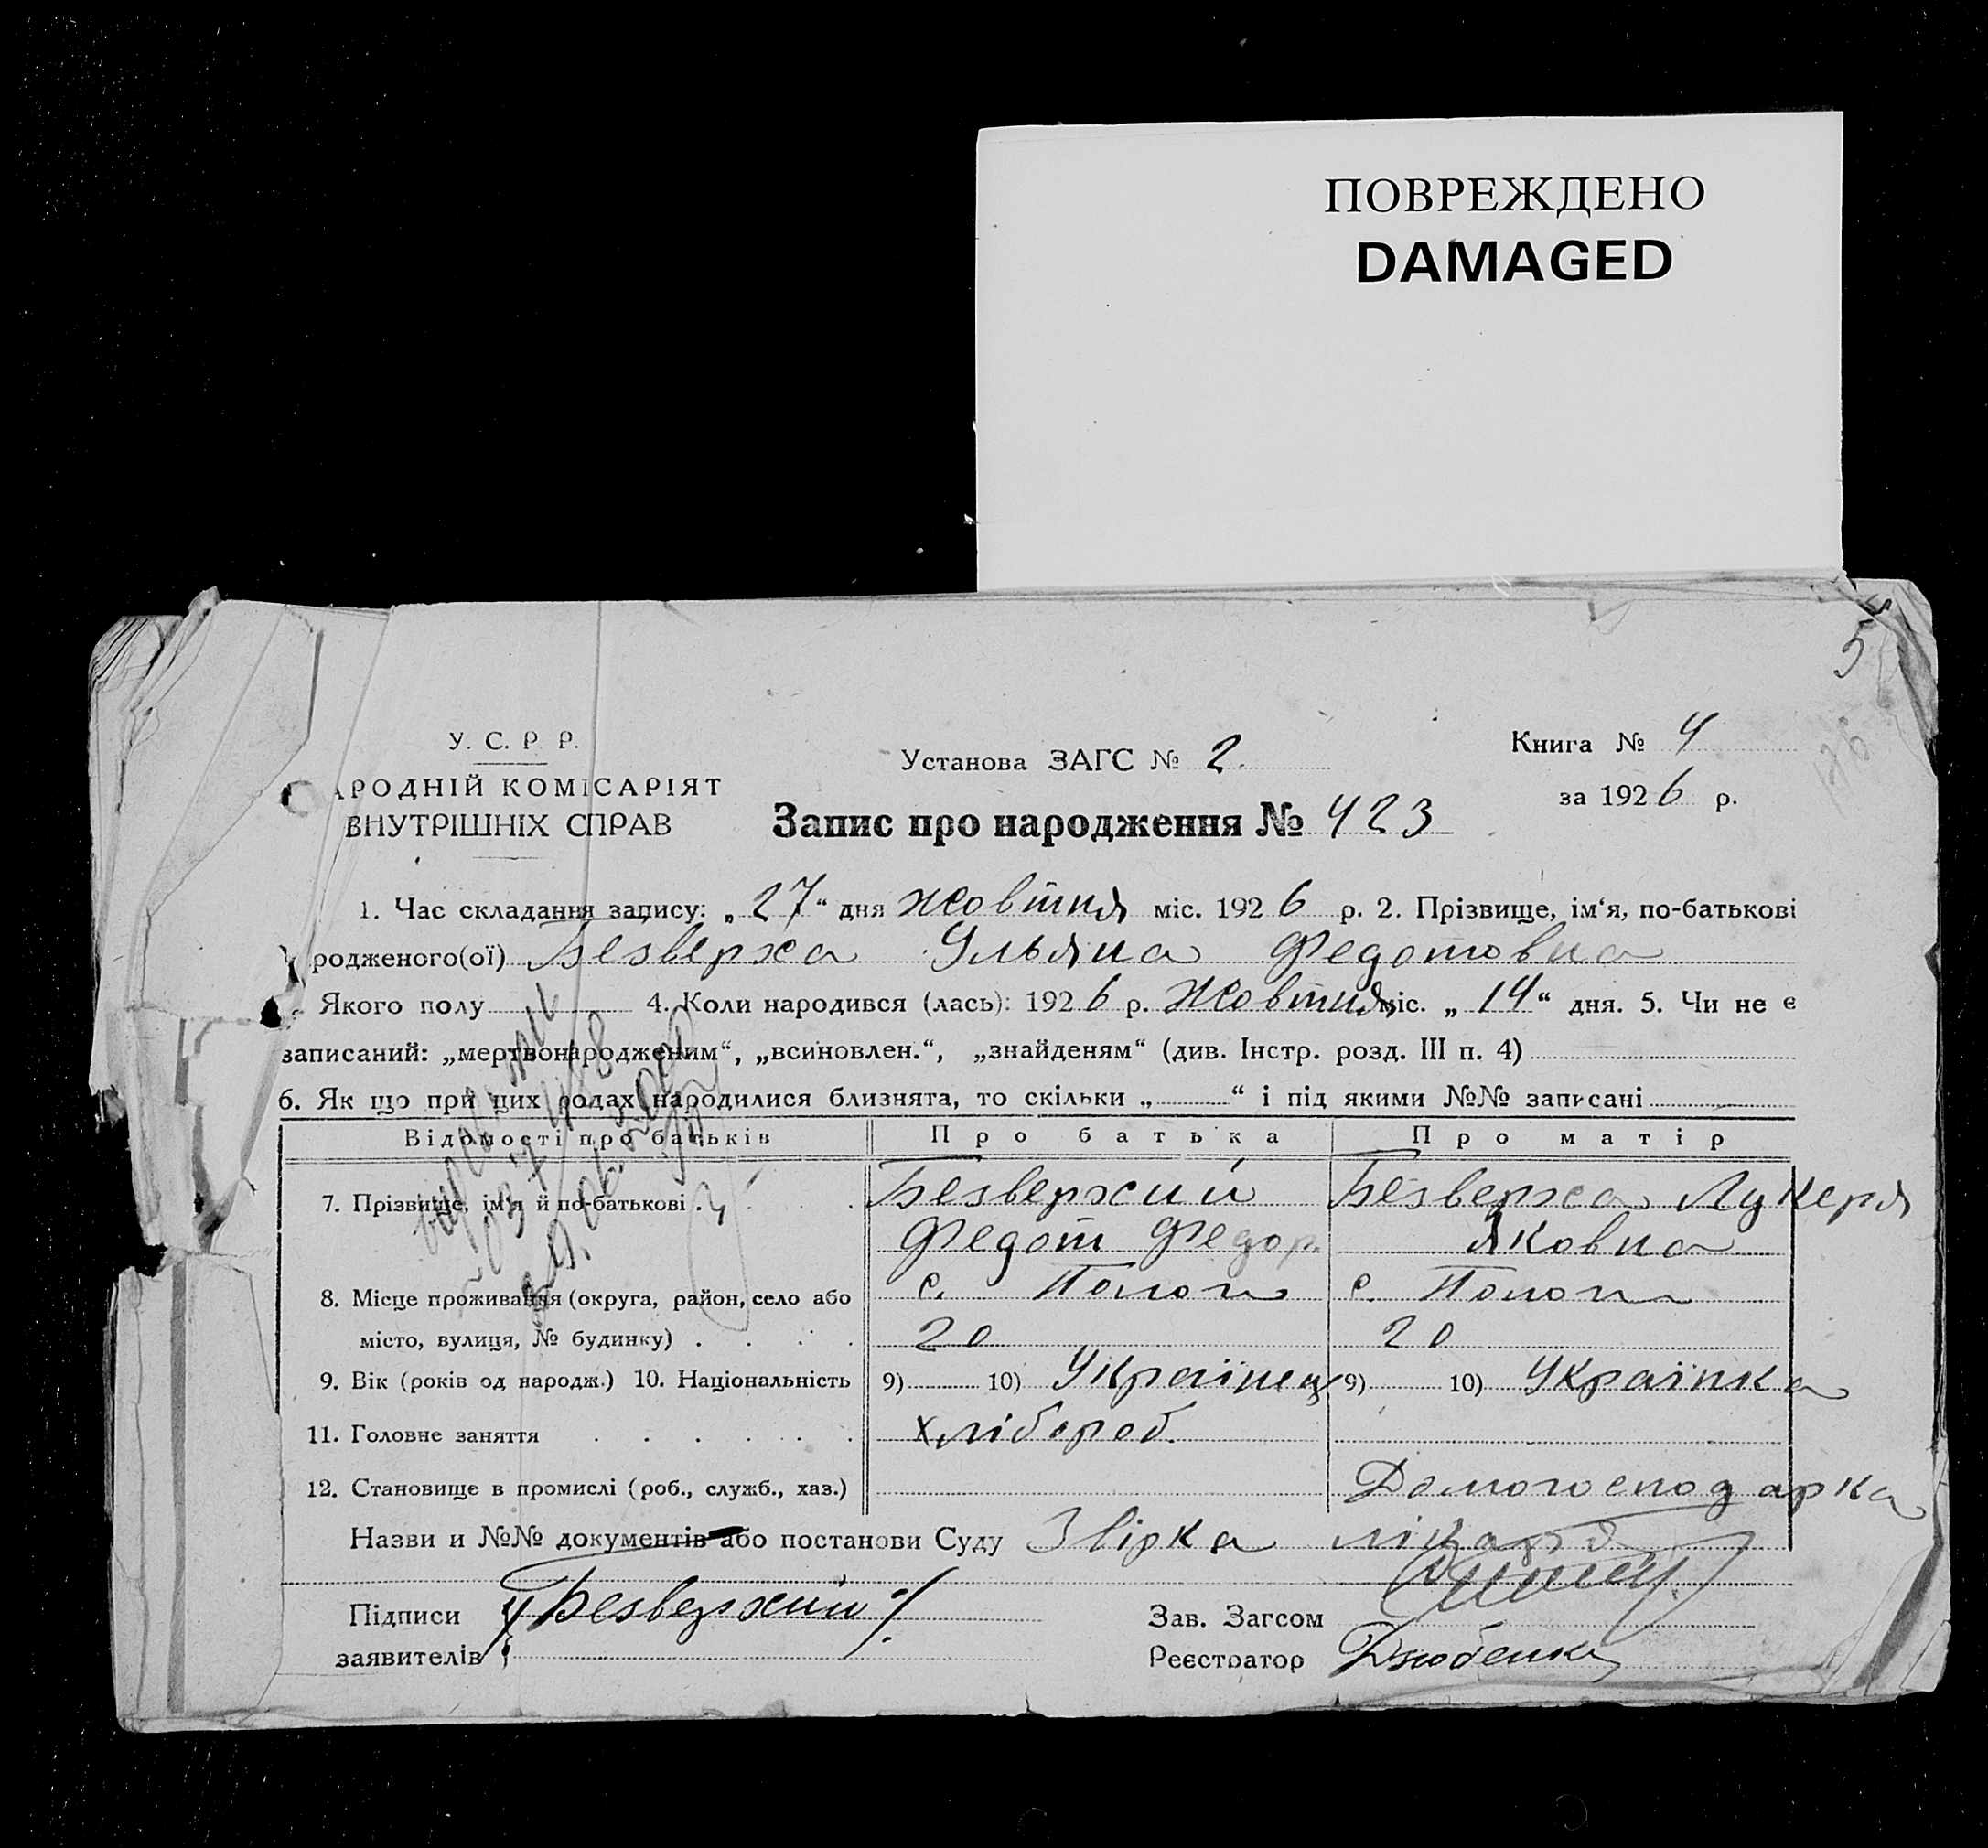 ПОВРЕЖДЕНО
DAMAGED
5
У. С. Р. Р.
АРОДНІЙ КОМІСАРІЯТ
ВНУТРІШНІХ СПРАВ
Установа ЗАГС № 2.
Книга № 4
за 1926 р.
Запис про народження № 423
1. Час складання запису: „27“ дня жовтня міс. 1926 р. 2. Прізвище, ім‘я, по-батькові
родженого(ої) Безверха Ульяна Федотовна
Якого полу 4. Коли народився (лась): 1926 р. Жовтня міс. „14“ дня. 5. Чи не є
записаний: „мертвонародженим“, „всиновлен.“, „знайденям“ (див. Інстр. розд. III п. 4)
6. Як що при цих родах народилися близнята, то скільки „ “ і під якими №№ записані
Відомості про батьків Про батька Про матір
7. Прізвище, ім‘я й по-батькові Безверхий Безверха Лукеря
Федот Федор. Яковна
8. Місце проживання (округа, район, село або с. Пологи с. Пологи
місто, вулиця, № будинку) 20 20
9. Вік (років од народж.) 10. Національність 9) 10) Українец 9) 10) Українка
11. Головне заняття хлібороб.
12. Становище в промислі (роб., служб., хаз.) Домогосподарка
Назви и №№ документів або постанови Суду Звірка
Підписи Безверхий
заявителів
Зав. Загсом
Реєстратор Дзюбенко